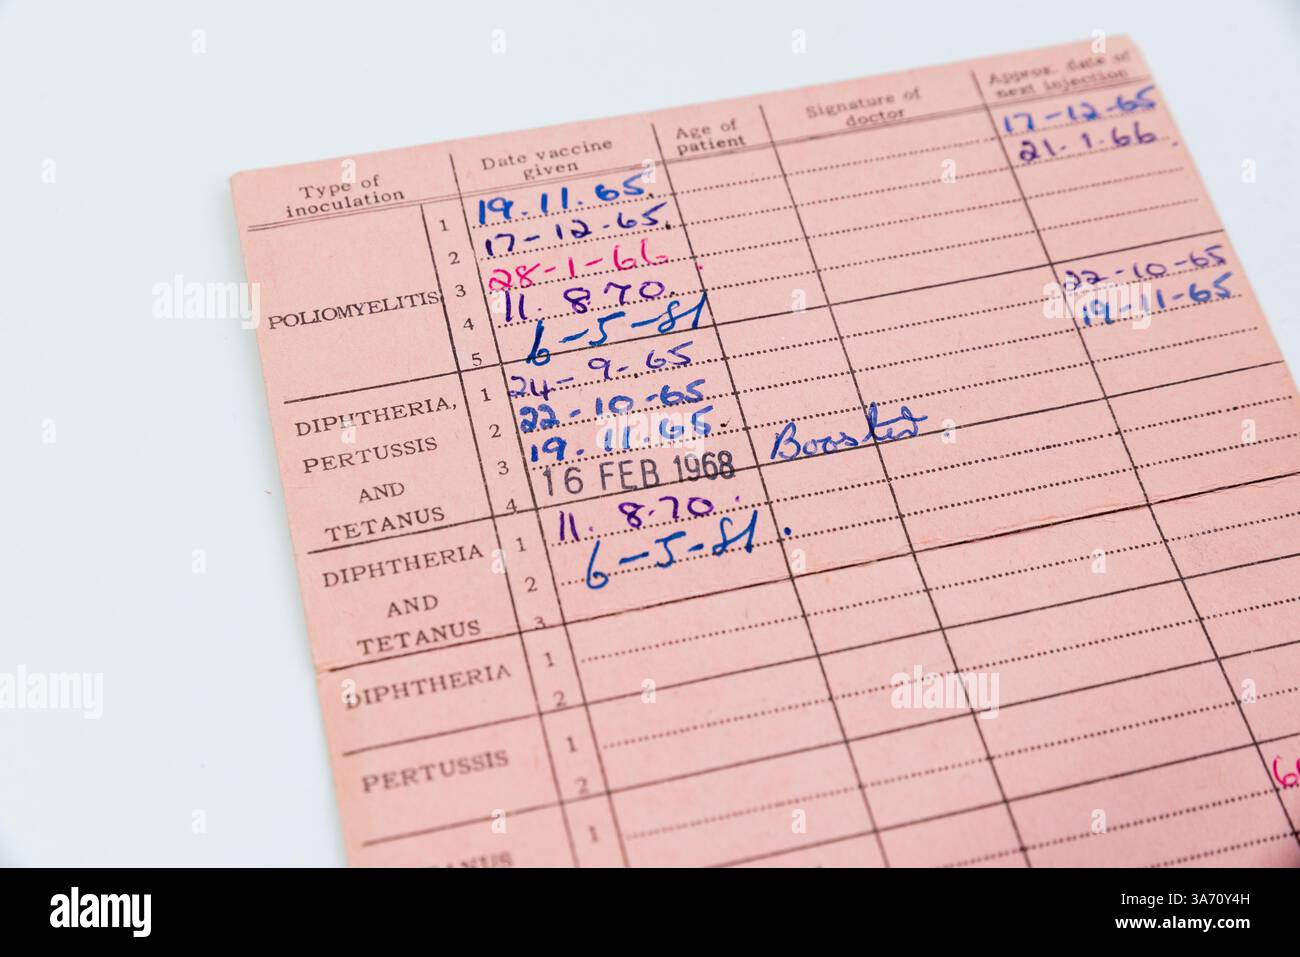 Type of inoculation Date vaccine given Age of patient Signature of doctor Approx. date of next injection
POLIOMYELITIS
1 19.11.65. 17-12-65
2 17-12-65. 21.1.66.
3 28-1-66
4 11.8.70.
5 6-5-81
DIPHTHERIA, PERTUSSIS AND TETANUS
1 24-9-65 22-10-65
2 22-10-65 19-11-65
3 19.11.65.
4 16 FEB 1968 Boosted.
DIPHTHERIA AND TETANUS
1 11.8.70.
2 6-5-81.
3
DIPHTHERIA
1
2
PERTUSSIS
1
2
1
alamy
Image ID: 3A70Y4H
www.alamy.com